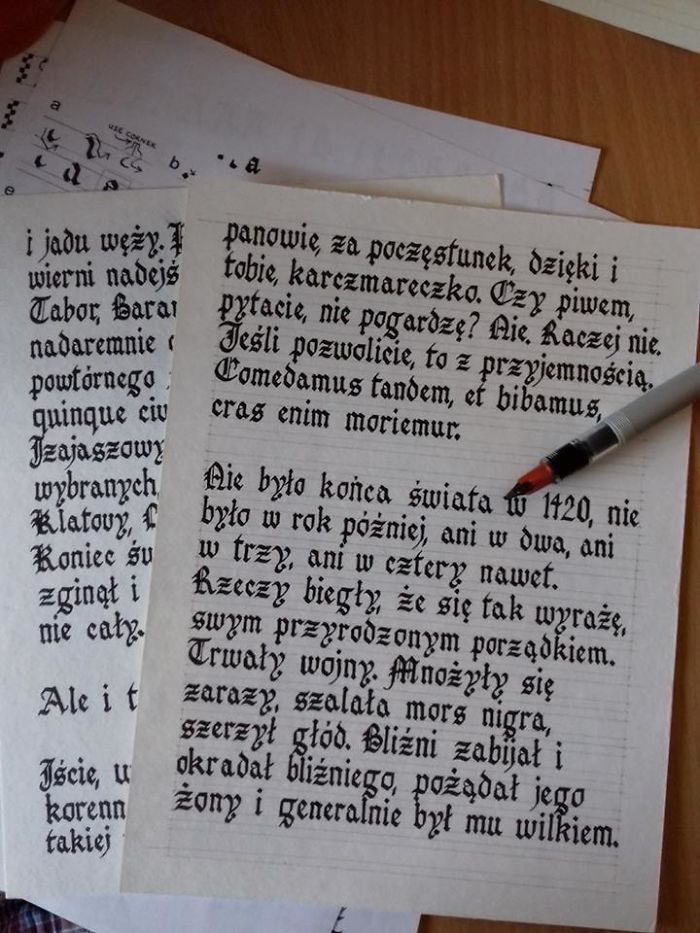 a
USE CORNER
b
a
e
i jadu węży.
wierni
Tabor,
nadaremnie
powtórnego
quinque
Izajaszowy
wybranych
Klatovy,
Koniec
zginął i
nie cały.
Ale i
Iście,
takiej
panowie, za poczęstunek, dzięki i
tobie, karczmareczko. Czy piwem,
pytacie, nie pogardzę? Nie. Raczej nie.
Jeśli pozwolicie, to z przyjemnością.
Comedamus tandem, et bibamus,
cras enim moriemur.
Nie było końca świata w 1420, nie
było w rok później, ani w dwa, ani
w trzy, ani w cztery nawet.
Rzeczy biegły, że się tak wyrażę,
swym przyrodzonym porządkiem.
Trwały wojny. Mnożyły się
zarazy, szalała mors nigra,
szerzył głód. Bliźni zabijał i
okradał bliźniego, pożądał jego
żony i generalnie był mu wilkiem.